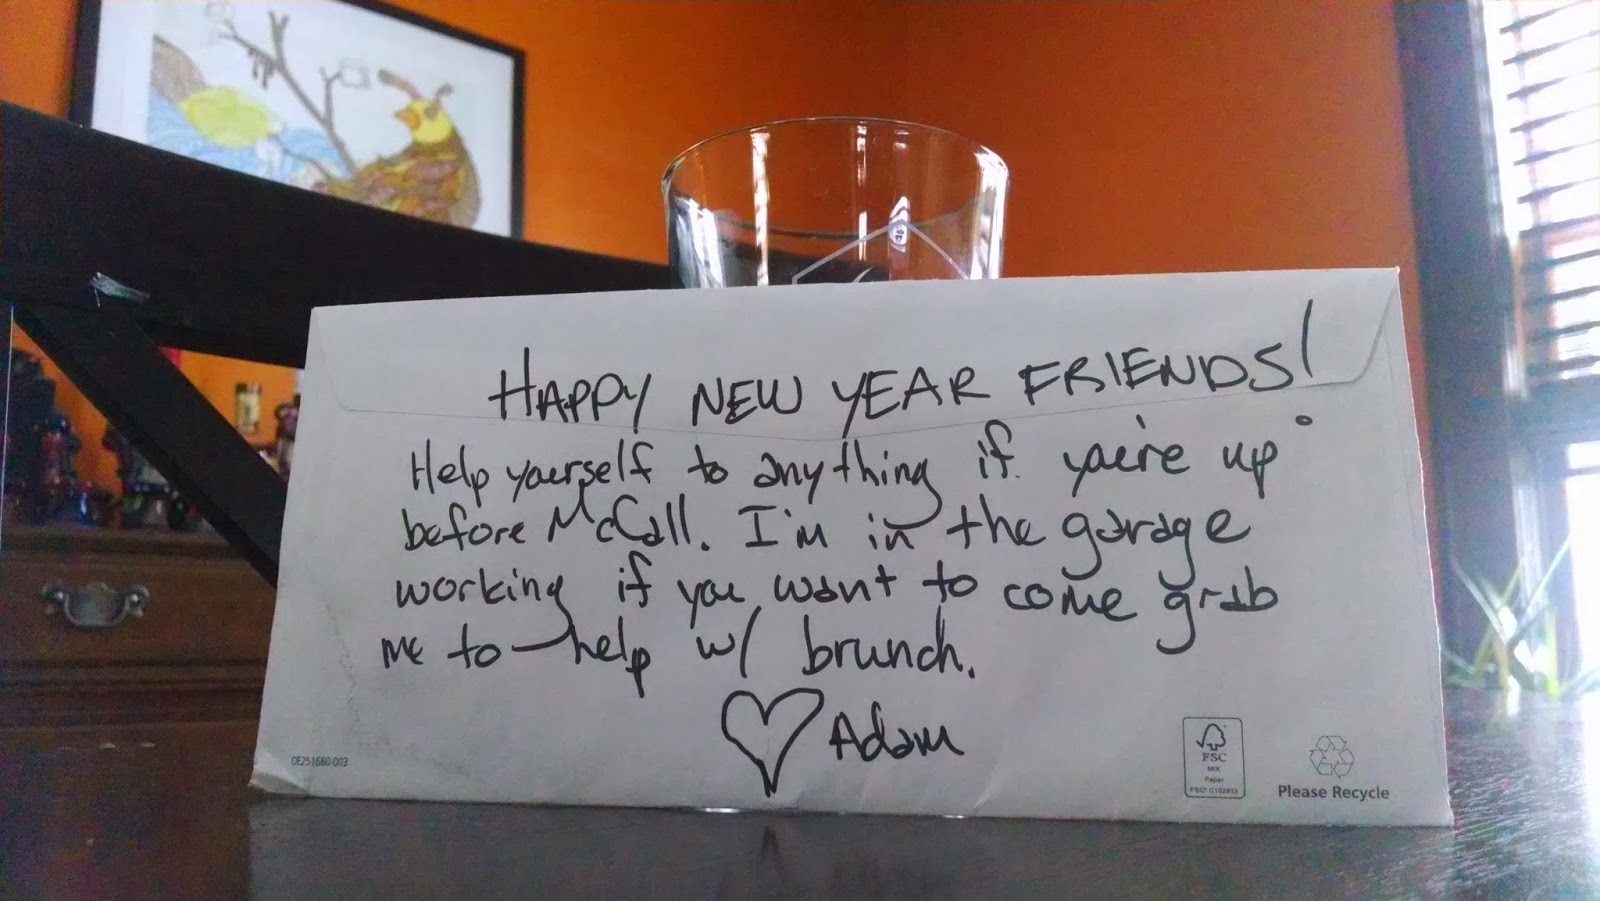 HAPPY NEW YEAR FRIENDS!
Help yourself to anything if you're up
before McCall. I'm in the garage
working if you want to come grab
me to help w/ brunch.
♡ Adam
DE251680-003
FSC
MIX
Paper
FSC® C102933
Please Recycle